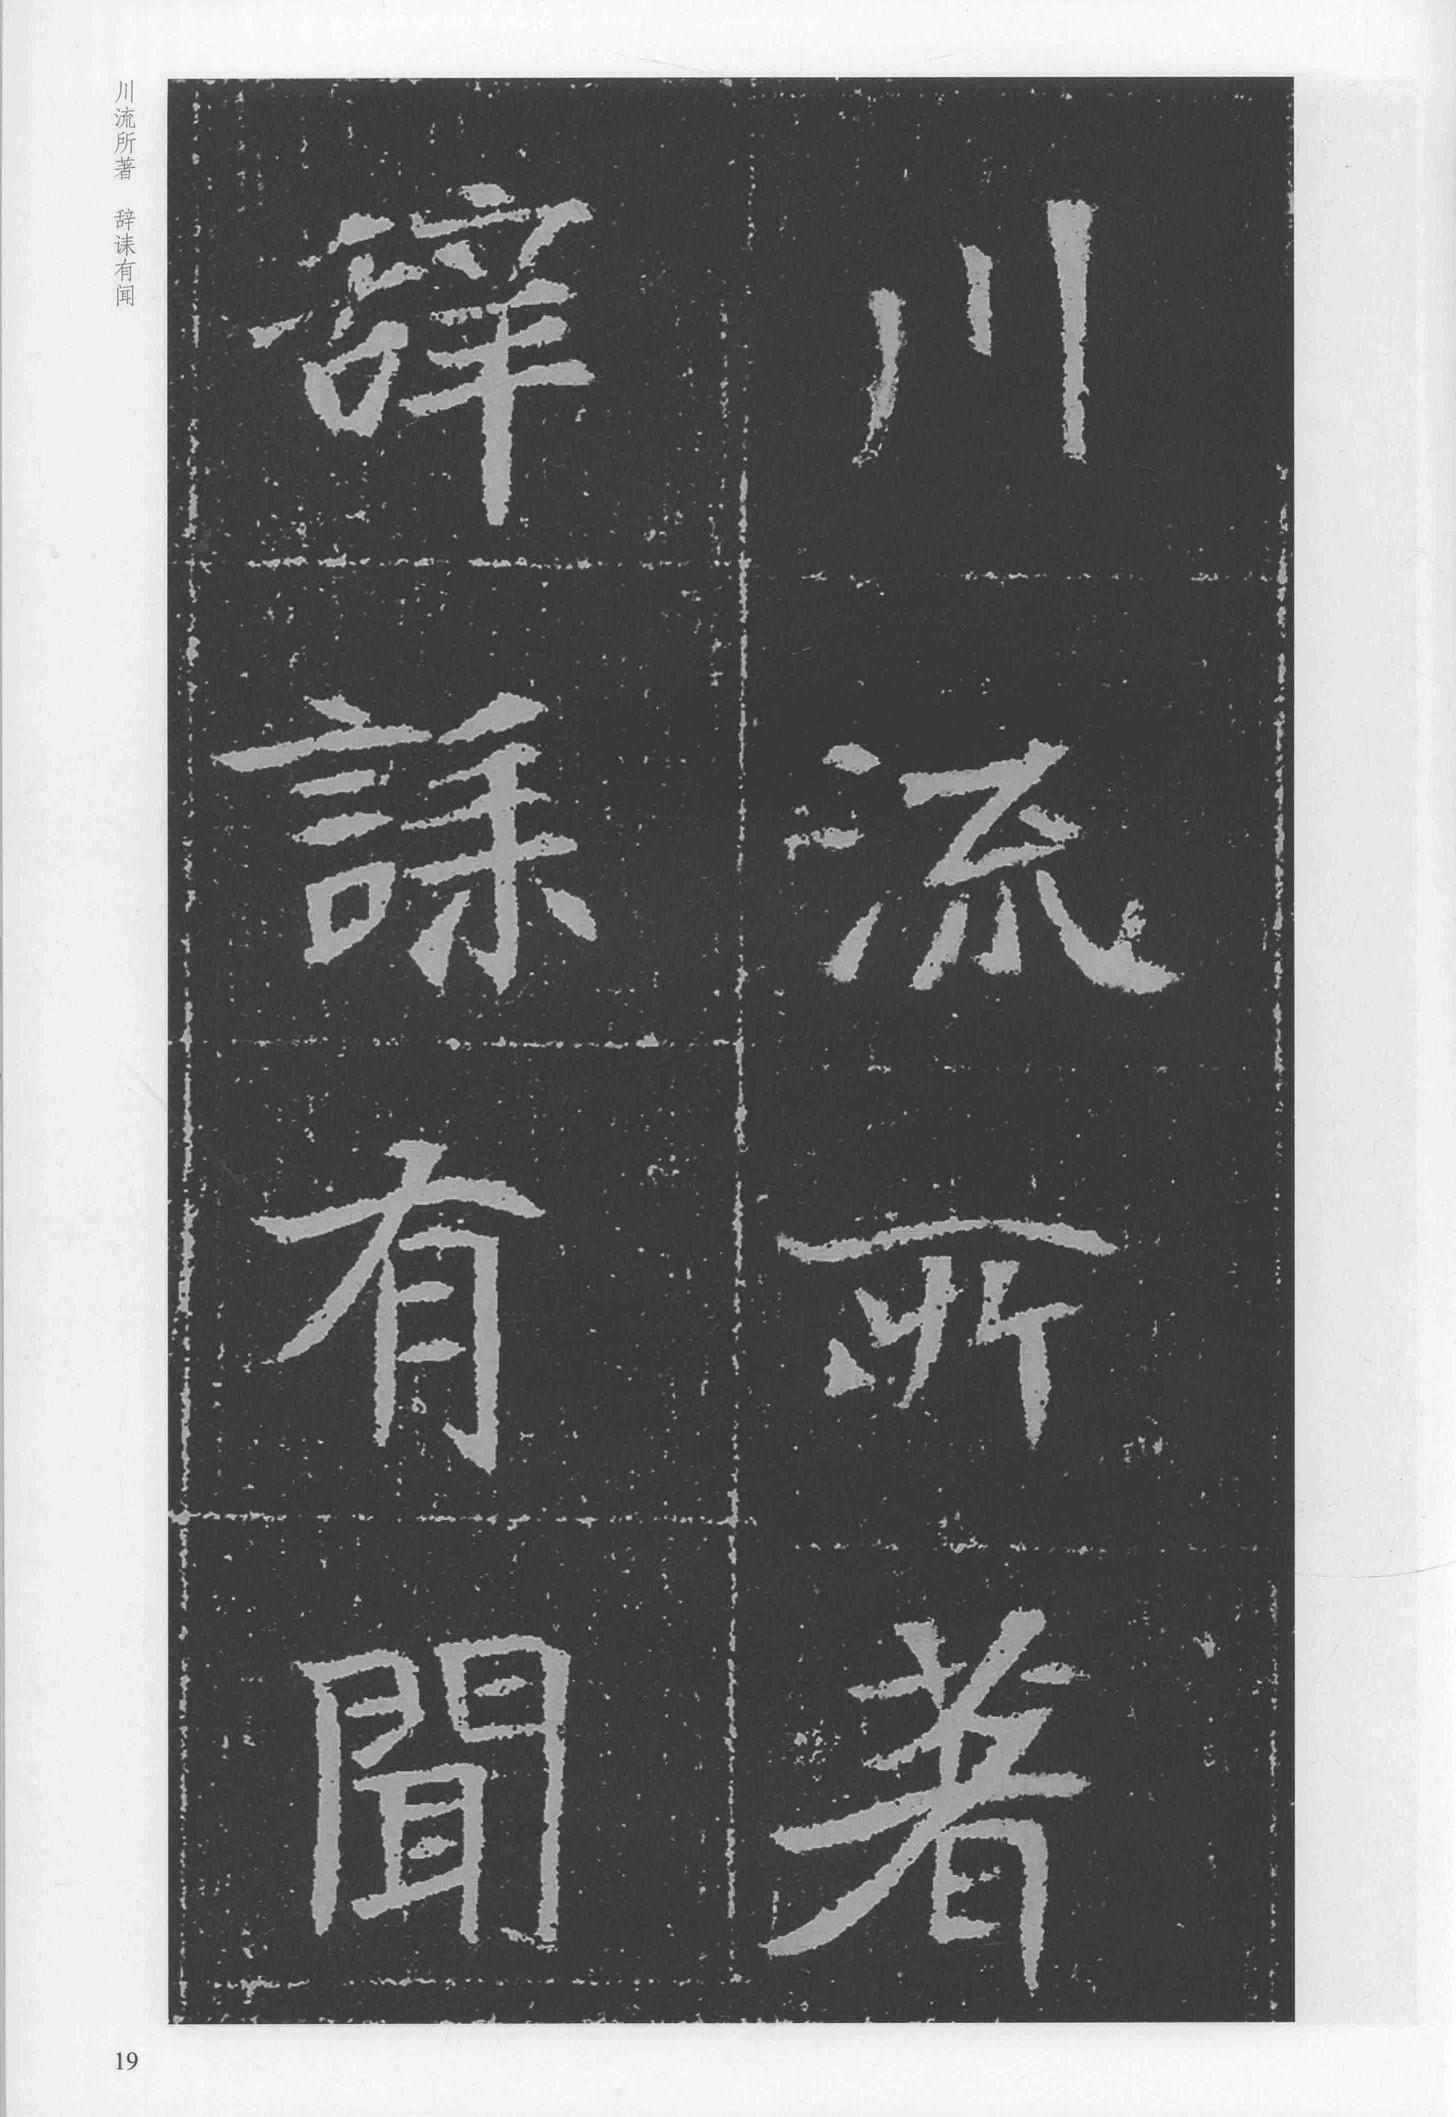 川流所著
辞誄有聞
川流所著　辞诔有闻
19